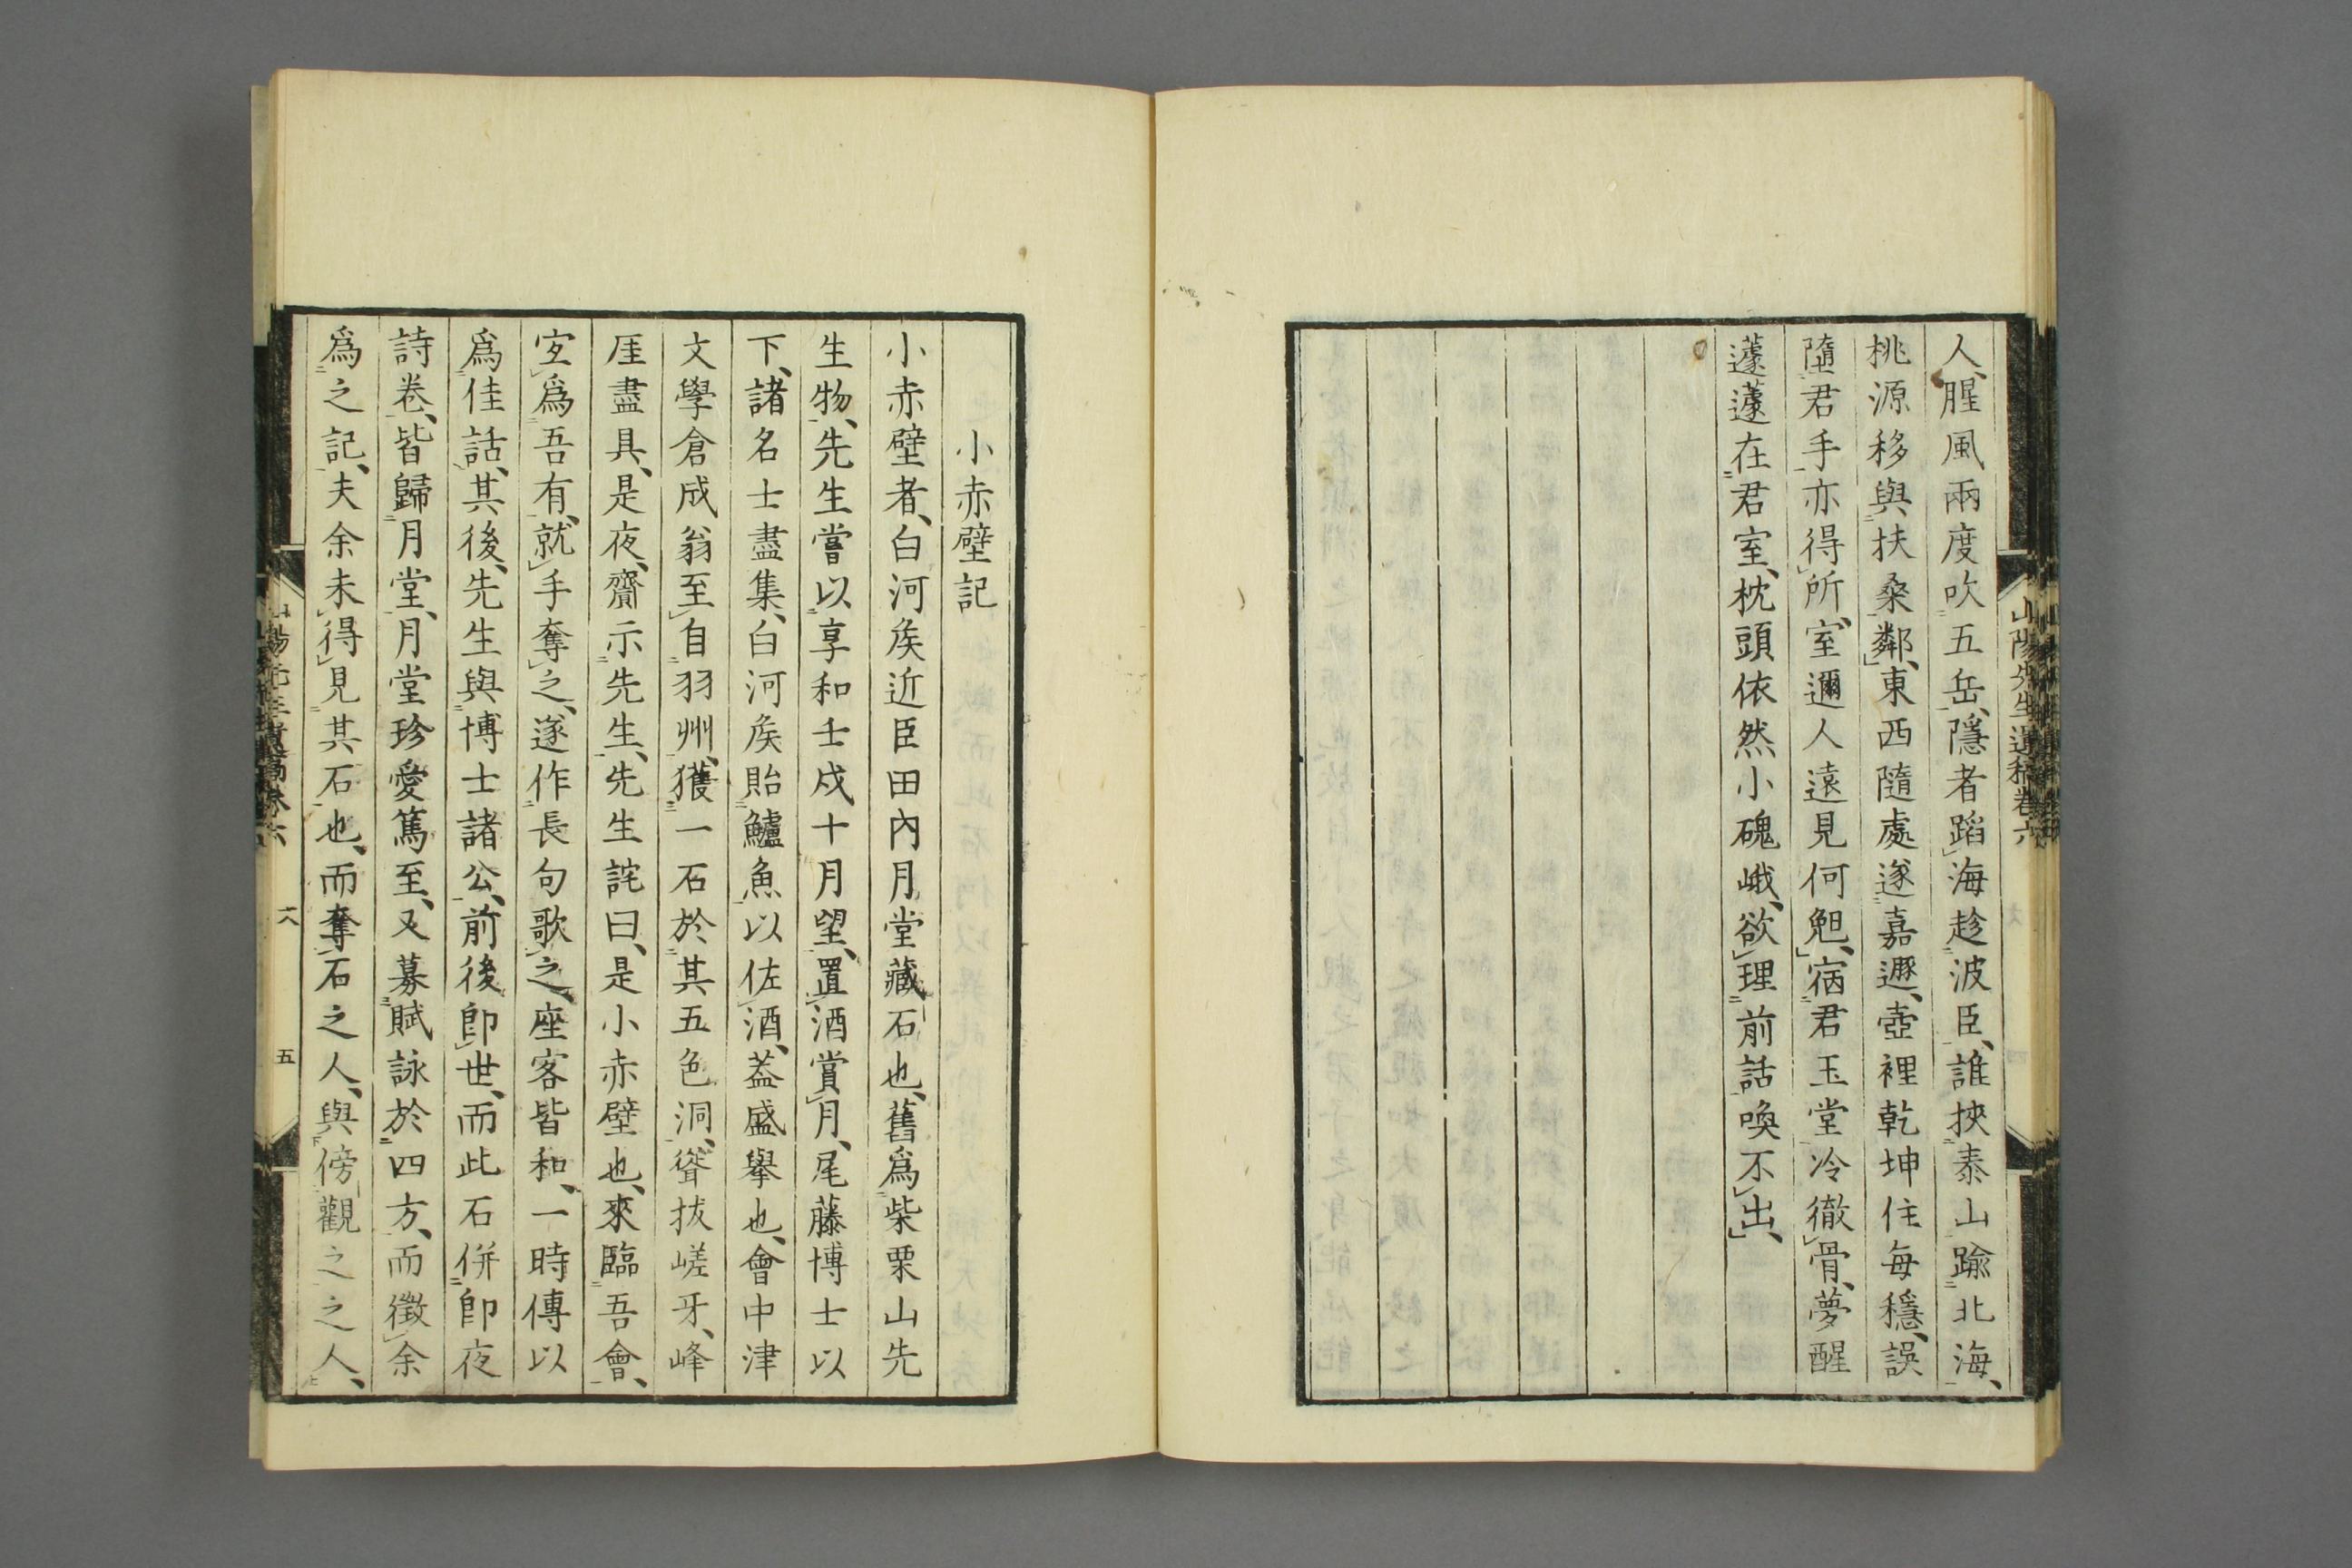 人、腥風兩度吹五岳、隱者蹈海趁波臣、誰挾泰山踰北海、
桃源移與扶桑鄰、東西隨處遂嘉遯、壺裡乾坤住每穩、誤
墮君手亦得所、室邇人遠見何艴、宿君玉堂冷徹骨、夢醒
蘧蘧在君室、枕頭依然小磈峨、欲理前話喚不出、
山陽先生遺稿卷六
小赤壁記
小赤壁者、白河矦近臣田內月堂藏石也、舊爲柴栗山先
生物、先生嘗以享和壬戌十月望、置酒賞月、尾藤博士以
下、諸名士盡集、白河矦貽鱸魚以佐酒、葢盛擧也、會中津
文學倉成翁至自羽州、獲一石於其五色洞、聳拔嵯牙、峰
厓盡具、是夜、齎示先生、先生詫曰、是小赤壁也、來臨吾會、
宐爲吾有、就手奪之、遂作長句歌之、座客皆和、一時傳以
爲佳話、其後、先生與博士諸公、前後卽世、而此石併卽夜
詩卷、皆歸月堂、月堂珍愛篤至、又募賦詠於四方、而徵余
爲之記、夫余未得見其石也、而奪石之人、與傍觀之之人、
六
五